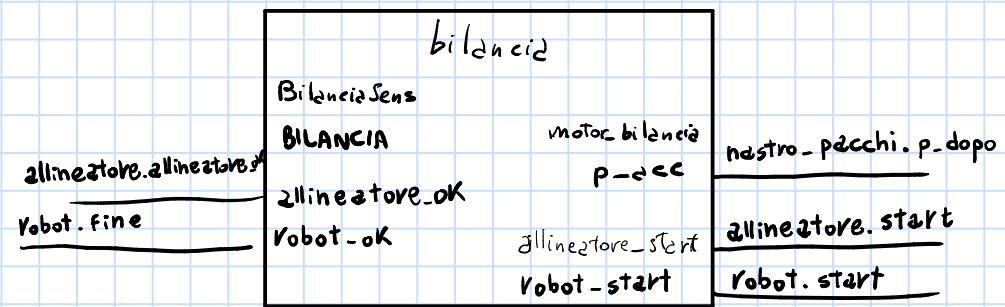 bilancia
BilanciaSens
BILANCIA
motor_bilancia
nastro_pacchi.p_dopo
allineatore.allineatore_ok
p_acc
allineatore_ok
robot.fine
robot_ok
allineatore_start
allineatore.start
robot_start
robot.start